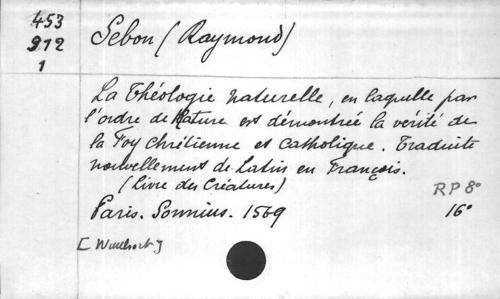 453
912
1
Sebon (Raymond)
La Théologie naturelle, en laquelle par
l'ordre de Nature est démontrée la vérité de
la Foy Chrétienne et Catholique. Traduite
nouvellement de Latin en François.
(Livre des Créatures)
RP 8°
Paris. Sonnius. 1569
16°